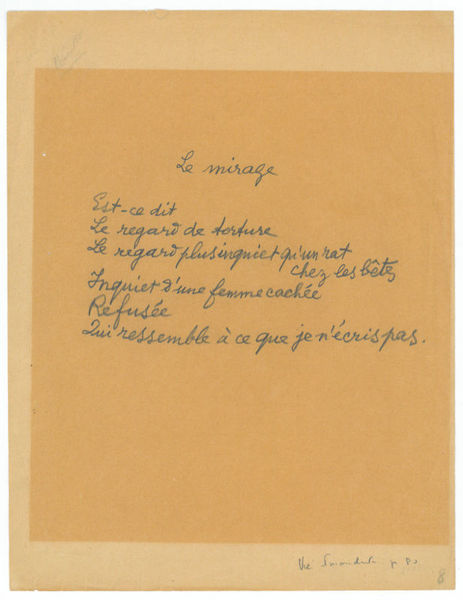 Le mirage
Est-ce dit
Le regard de torture
Le regard plus inquiet qu'un rat
chez les bêtes
Inquiet d'une femme cachée
Refusée
Qui ressemble à ce que je n'écris pas.
8